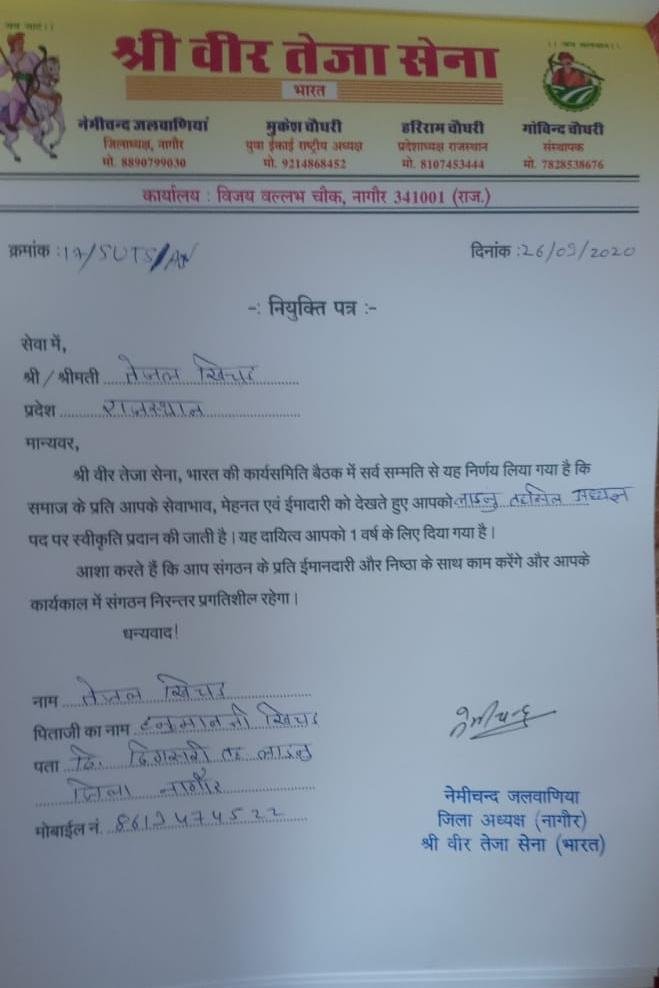 जय जाट।।
श्री वीर तेजा सेना
भारत
नेमीचन्द जलवाणियां
जिलाध्यक्ष, नागौर
मो. 8890799030
मुकेश चौधरी
युवा ईकाई राष्ट्रीय अध्यक्ष
मो. 9214868452
हरिराम चौधरी
प्रदेशाध्यक्ष राजस्थान
मो. 8107453444
गोविन्द चौधरी
संस्थापक
मो. 7828538676
कार्यालय : विजय वल्लभ चौक, नागौर 341001 (राज.)
क्रमांक : 17/SVTS/
दिनांक : 26/09/2020
-: नियुक्ति पत्र :-
सेवा में,
श्री / श्रीमती तेजल खिचड़
प्रदेश राजस्थान
मान्यवर,
श्री वीर तेजा सेना, भारत की कार्यसमिति बैठक में सर्व सम्मति से यह निर्णय लिया गया है कि
समाज के प्रति आपके सेवाभाव, मेहनत एवं ईमादारी को देखते हुए आपको लाडनु तहसिल अध्यक्ष
पद पर स्वीकृति प्रदान की जाती है। यह दायित्व आपको 1 वर्ष के लिए दिया गया है।
आशा करते हैं कि आप संगठन के प्रति ईमानदारी और निष्ठा के साथ काम करेंगे और आपके
कार्यकाल में संगठन निरन्तर प्रगतिशील रहेगा।
धन्यवाद!
नाम तेजल खिचड़
पिताजी का नाम हनुमान जी खिचड़
पता त. लाडनु
जिला नागौर
मोबाईल नं.
नेमीचन्द
नेमीचन्द जलवाणिया
जिला अध्यक्ष (नागौर)
श्री वीर तेजा सेना (भारत)